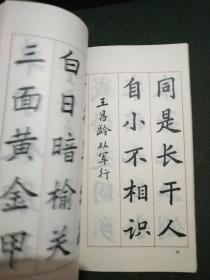 同是长干人
自小不相识
王昌龄 从军行
白日暗榆关
三面黄金甲